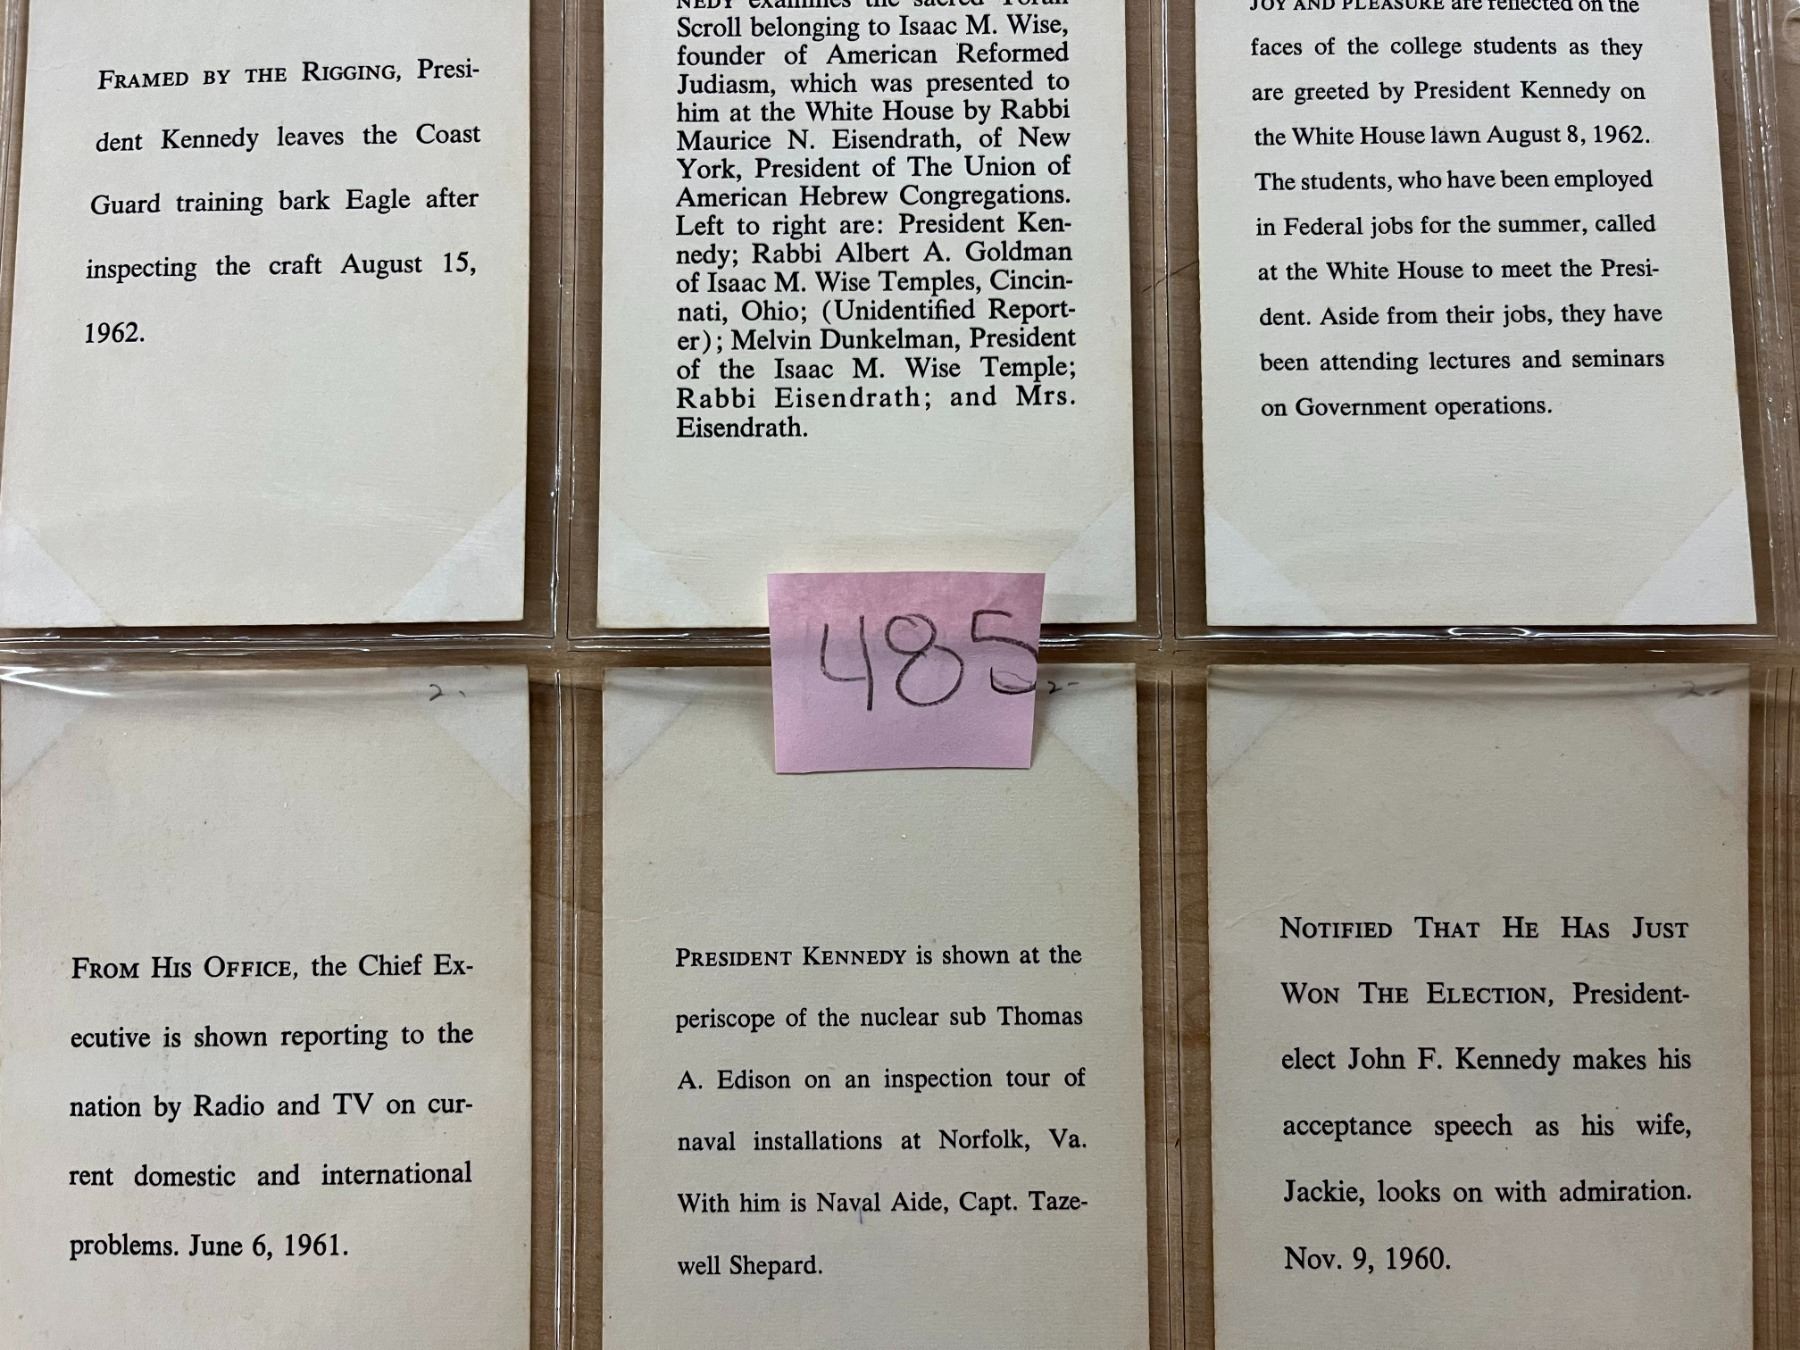 FRAMED BY THE RIGGING, Presi-
dent Kennedy leaves the Coast
Guard training bark Eagle after
inspecting the craft August 15,
1962.
NEDY examines the sacred Torah
Scroll belonging to Isaac M. Wise,
founder of American Reformed
Judiasm, which was presented to
him at the White House by Rabbi
Maurice N. Eisendrath, of New
York, President of The Union of
American Hebrew Congregations.
Left to right are: President Ken-
nedy; Rabbi Albert A. Goldman
of Isaac M. Wise Temples, Cincin-
nati, Ohio; (Unidentified Report-
er); Melvin Dunkelman, President
of the Isaac M. Wise Temple;
Rabbi Eisendrath; and Mrs.
Eisendrath.
JOY AND PLEASURE are reflected on the
faces of the college students as they
are greeted by President Kennedy on
the White House lawn August 8, 1962.
The students, who have been employed
in Federal jobs for the summer, called
at the White House to meet the Presi-
dent. Aside from their jobs, they have
been attending lectures and seminars
on Government operations.
485
2.
2-
2-
FROM HIS OFFICE, the Chief Ex-
ecutive is shown reporting to the
nation by Radio and TV on cur-
rent domestic and international
problems. June 6, 1961.
PRESIDENT KENNEDY is shown at the
periscope of the nuclear sub Thomas
A. Edison on an inspection tour of
naval installations at Norfolk, Va.
With him is Naval Aide, Capt. Taze-
well Shepard.
NOTIFIED THAT HE HAS JUST
WON THE ELECTION, President-
elect John F. Kennedy makes his
acceptance speech as his wife,
Jackie, looks on with admiration.
Nov. 9, 1960.